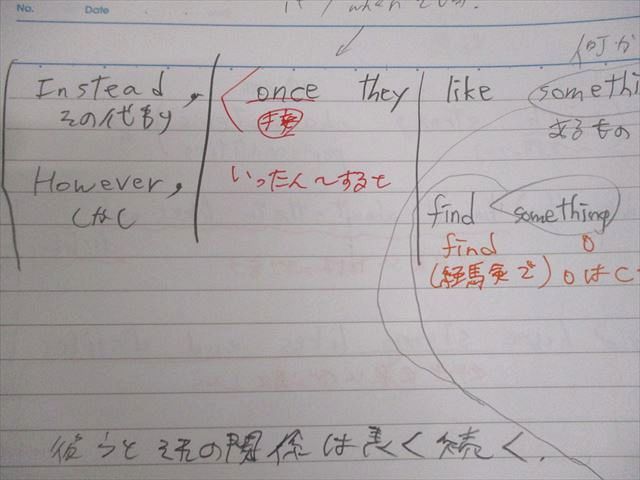 No. Date
Instead, once they like somethi
その代わり 接 あるもの
However, いったん〜すると
しかし find something
find O
(経験で) OはC
彼らとその関係は長く続く.